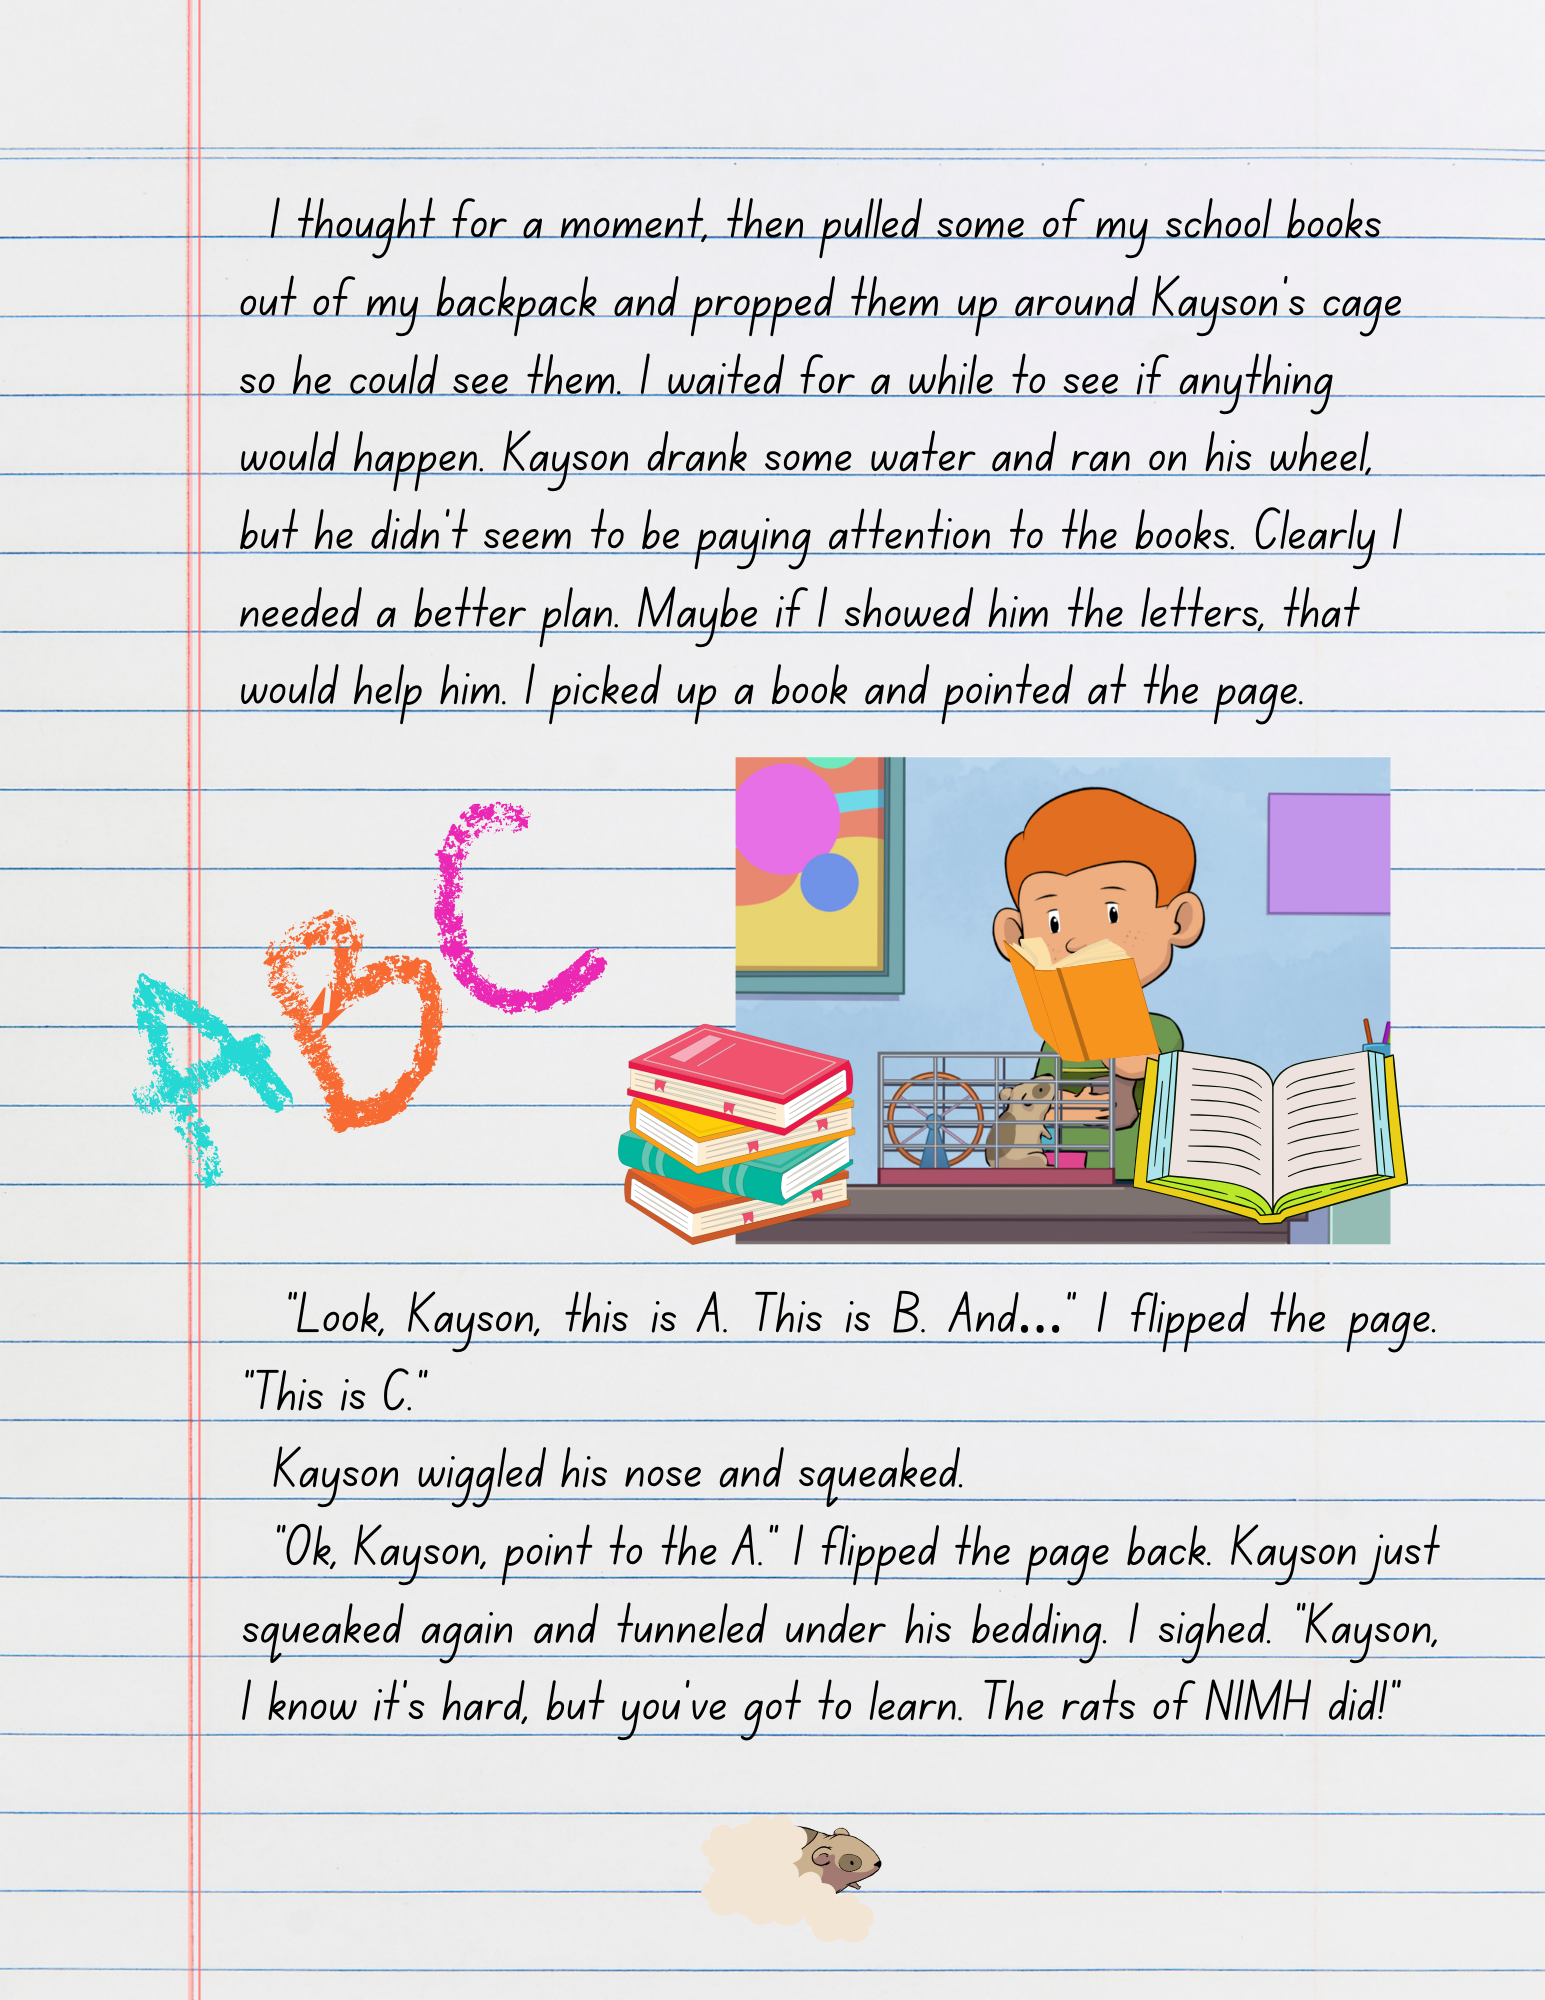 I thought for a moment, then pulled some of my school books
out of my backpack and propped them up around Kayson's cage
so he could see them. I waited for a while to see if anything
would happen. Kayson drank some water and ran on his wheel,
but he didn't seem to be paying attention to the books. Clearly I
needed a better plan. Maybe if I showed him the letters, that
would help him. I picked up a book and pointed at the page.
A B C
"Look, Kayson, this is A. This is B. And..." I flipped the page.
"This is C."
Kayson wiggled his nose and squeaked.
"Ok, Kayson, point to the A." I flipped the page back. Kayson just
squeaked again and tunneled under his bedding. I sighed. "Kayson,
I know it's hard, but you've got to learn. The rats of NIMH did!"